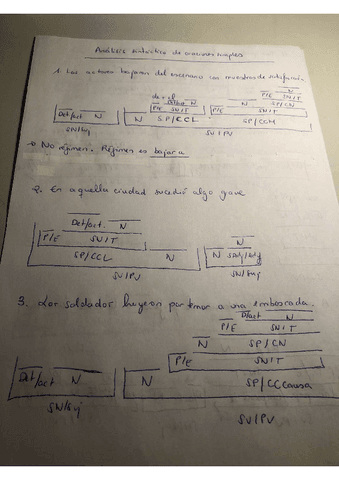 Análisis sintáctico de oraciones simples
1. Los actores bajaron del escenario con muestras de satisfacción
P/E N
SN/T
de + el
P/E Det/act N
SN/T
N SP/CN
P/E SN/T
Det/act N
N SP/CCL SP/CCM
SN/Suj
SV/PV
No régimen. Régimen es bajar a
2. En aquella ciudad sucedió algo grave
Det/act. N
P/E SN/T
SP/CCL
N
N
N SAdj/Ady
SV/PV
SN/Suj
3. Los soldados huyeron por temor a una emboscada.
Det/act N
P/E SN/T
N SP/CN
P/E SN/T
Det/act N
N SP/CCCausa
SN/Suj
SV/PV